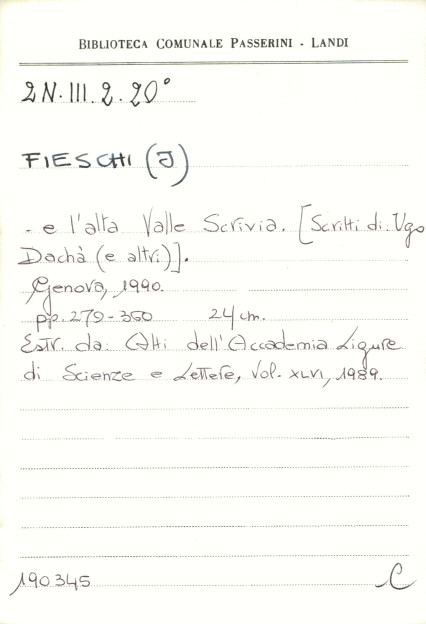 BIBLIOTECA COMUNALE PASSERINI - LANDI
2N.III.2.20°
FIESCHI (I)
- e l'alta Valle Scrivia. [Scritti di Ugo
Dachà (e altri)].
Genova, 1990.
pp. 279-350 24 cm.
Estr. da: Atti dell'Accademia Ligure
di Scienze e Lettere, Vol. XLVI, 1989.
190345 C